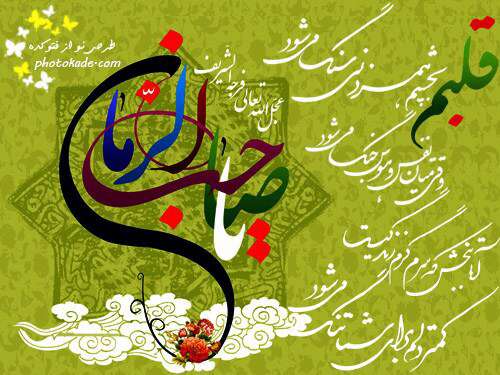 طرحی نو از فتوکده
photokade.com
یا صاحب الزّمان
عجل الله تعالی فرجه الشریف
قلبم
بچشم همزدنی سنگ می شود
وقتی میان نفس و هوس جنگ می شود
آقا ببخش که سرم گرم زندگیست
کمتر دلم برای شما تنگ می شود